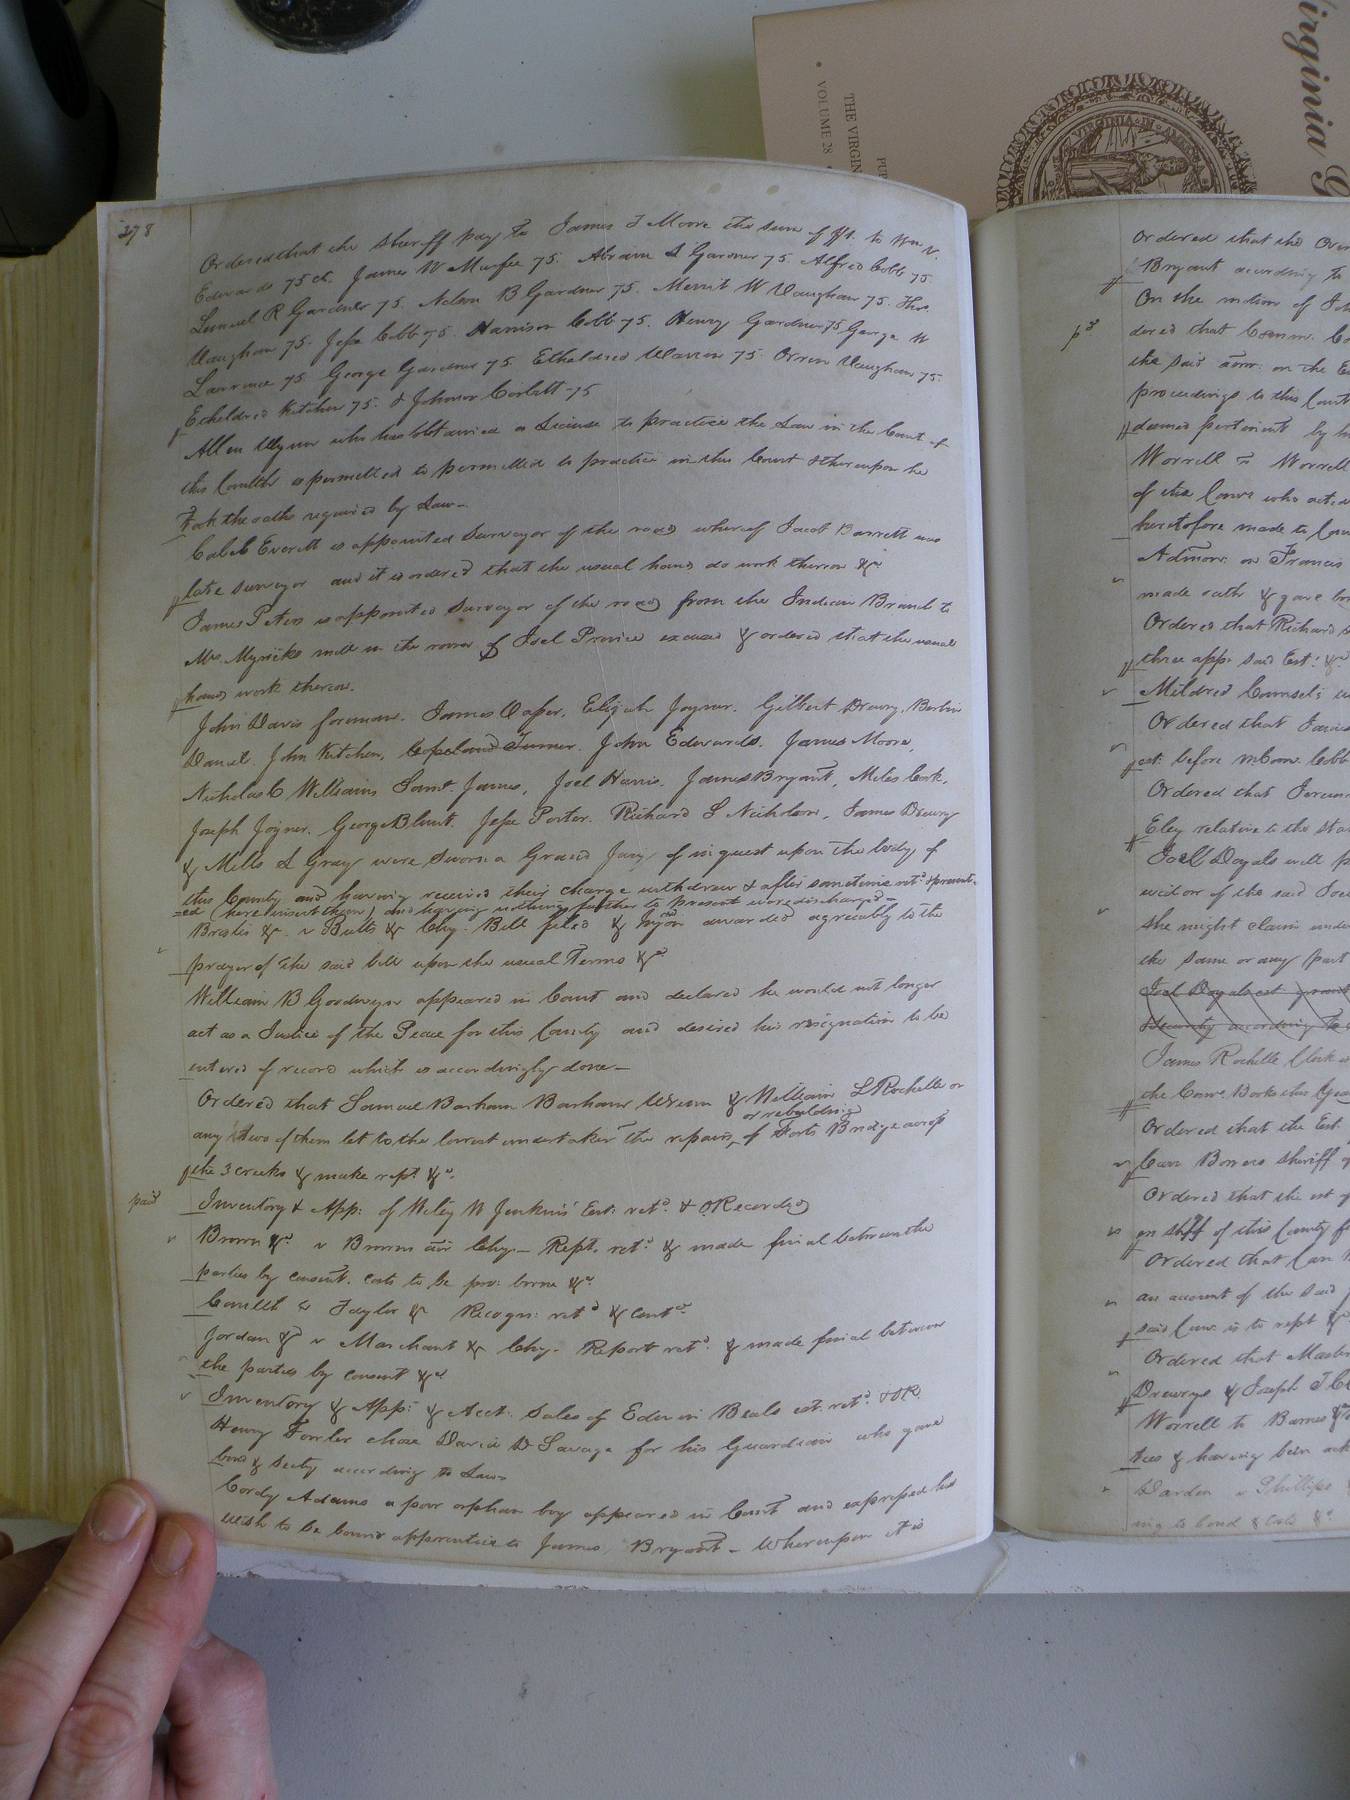 278
Ordered that the Sheriff pay to James T Moore the sum of $1. to Wm N.
Edwards 75 ct. James W Murfee 75. Abram S Gardner 75. Alfred Cobb 75
Lemuel R Gardner 75. Nelson B Gardner 75. Merrit W Vaughan 75. Thos.
Vaughan 75. Jesse Cobb 75. Harrison Cobb 75. Henry Gardner 75 George W
Lawrence 75 George Gardner 75. Etheldred Warren 75. Orren Vaughan 75.
Etheldred Kitchen 75. & Johnson Corlatt 75
Allen Wynn who has obtained a License to practice the Law in the Court of
this Comlth is permitted to permitted to practice in this Court & thereupon he
took the oaths required by Law.
Caleb Everett is appointed Surveyor of the road whereof Jacob Barrett was
late surveyor and it is ordered that the usual hands do work thereon &c
James Peters is appointed Surveyor of the road from the Indian Branch to
Mrs Myricks mill in the room of Joel Provice excused & ordered that the usual
hands work thereon.
John Davis foreman. James Casper, Elijah Joyner. Gilbert Drewry,
Daniel. John Kitchen, Copeland Turner. John Edwards. James Moore,
Nicholas C Williams Saml. James, Joel Harris. James Bryant, Miles Cook,
Joseph Joyner. George Blunt. Jesse Porter. Richard S Nicholson, James Drewry
& Mills L Gray were sworn a Grand Jury of inquest upon the body of
this County and having received their charge withdrew & after sometime retd. & present-
ed (here insert them) and having nothing further to present were discharged -
&c. v Butts &c Chy. Bill filed & Injon awarded agreeably to the
prayer of the said bill upon the usual Terms &c
William B Goodwyn appeared in Court and declared he would not longer
act as a Justice of the Peace for this County and desired his resignation to be
entered of record which is accordingly done -
Ordered that Samuel Barham Barham Wrenn & William L Rochelle or
or rebuilding
any two of them let to the lowest undertaker the repairs of Forts Bridge across
the 3 creeks & make rept. &c.
paid
Inventory & App: of Wiley W Jenkins' Est: retd. & ORecorded
Brown &c v Brown Chy. - Rept. retd. & made final between the
parties by consent. Costs to be pro: borne &c.
v Taylor &c Recogn: retd & contd.
Jordan &c v Marchant &c Chy. Report retd. & made final between
the parties by consent &c
Inventory & App: & Acct: Sales of Edwin Beals est. retd. & OR
Henry Fowler chose David D Savage for his Guardian who gave
bond & Secty according to Law
Cordy Adams a poor orphan boy appeared in Court and expressed his
wish to be bound apprentice to James Bryant - Whereupon it is
Ordered that the
Bryant according to
On the motion of
pd
dered that Comm.
the said admr. on the
proceedings to this Court
deemed pertinent by
Worrell v Worrell
of the Comr who
heretofore made to
Admor. on Francis
made oath & gave
Ordered that Richard
three app: said Est: &c
Mildred Counsel's
Ordered that
est. before
Ordered that
Eley relative to the
Joel Doyals will
of the said
she might claim under
the same or any part
Joel Doyals est
Security according to
James Rochelle Clerk
the Comrs Books this
Ordered that the Est.
Carr Bowers sheriff
Ordered that the est
on shff of this County
Ordered that
an account of the said
said Comr is to rept &c
Ordered that
Drewrys & Joseph T
Worrell to Barnes
tees & having been
Darden v Phillips
ing to bond & Costs &c
Virginia
THE VIRGIN
VOLUME 28
VIRGINIA